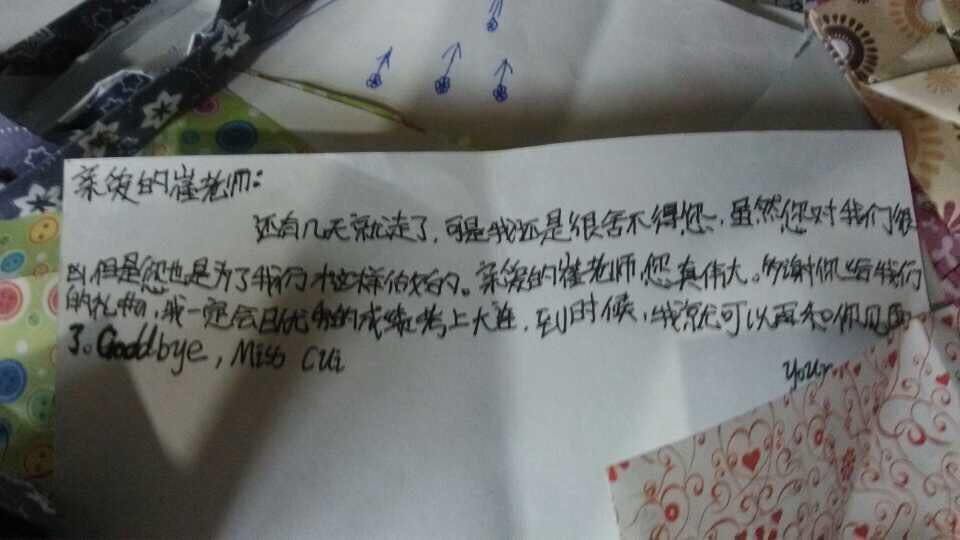 亲爱的崔老师:
还有几天就走了,可是我还是很舍不得您,虽然您对我们很
凶,但是您也是为了我们才这样做的。亲爱的崔老师,您真伟大。多谢你给我们
的礼物,我一定会已优秀的成绩考上大连,到时候,我就可以再和你见面
了。Goodbye, Miss Cui
Your